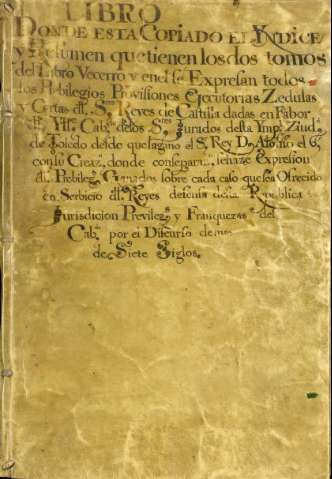 LIBRO
DONDE ESTA COPIADO EL YNDICE
y resumen que tienen los dos tomos
del Libro Vecerro y en el se Expresan todos
los Pribilegios Provisiones Ejecutorias Zedulas
y Cartas dlˢ. Sʳᵉˢ Reyes de Castilla dadas en Fabor
dl Yllᵉ. Cabᵒ. de los Sʳᵉˢ Jurados desta Ympˡ. Ziudᵈ.
de Toledo desde que la gano el S. Rey Dⁿ. Alfonso el 6º,
con su Creazⁿ, donde conseparazⁿ, se haze Expresion
dlˢ Pribilegˢ Ganados sobre cada caso que sea Ofrecido
en Serbicio dlˢ Reyes defensa de la Republica
Jurisdicion Previlegˢ y Franquezas del
Cabᵒ por el Discurso de mas
de Siete Siglos.